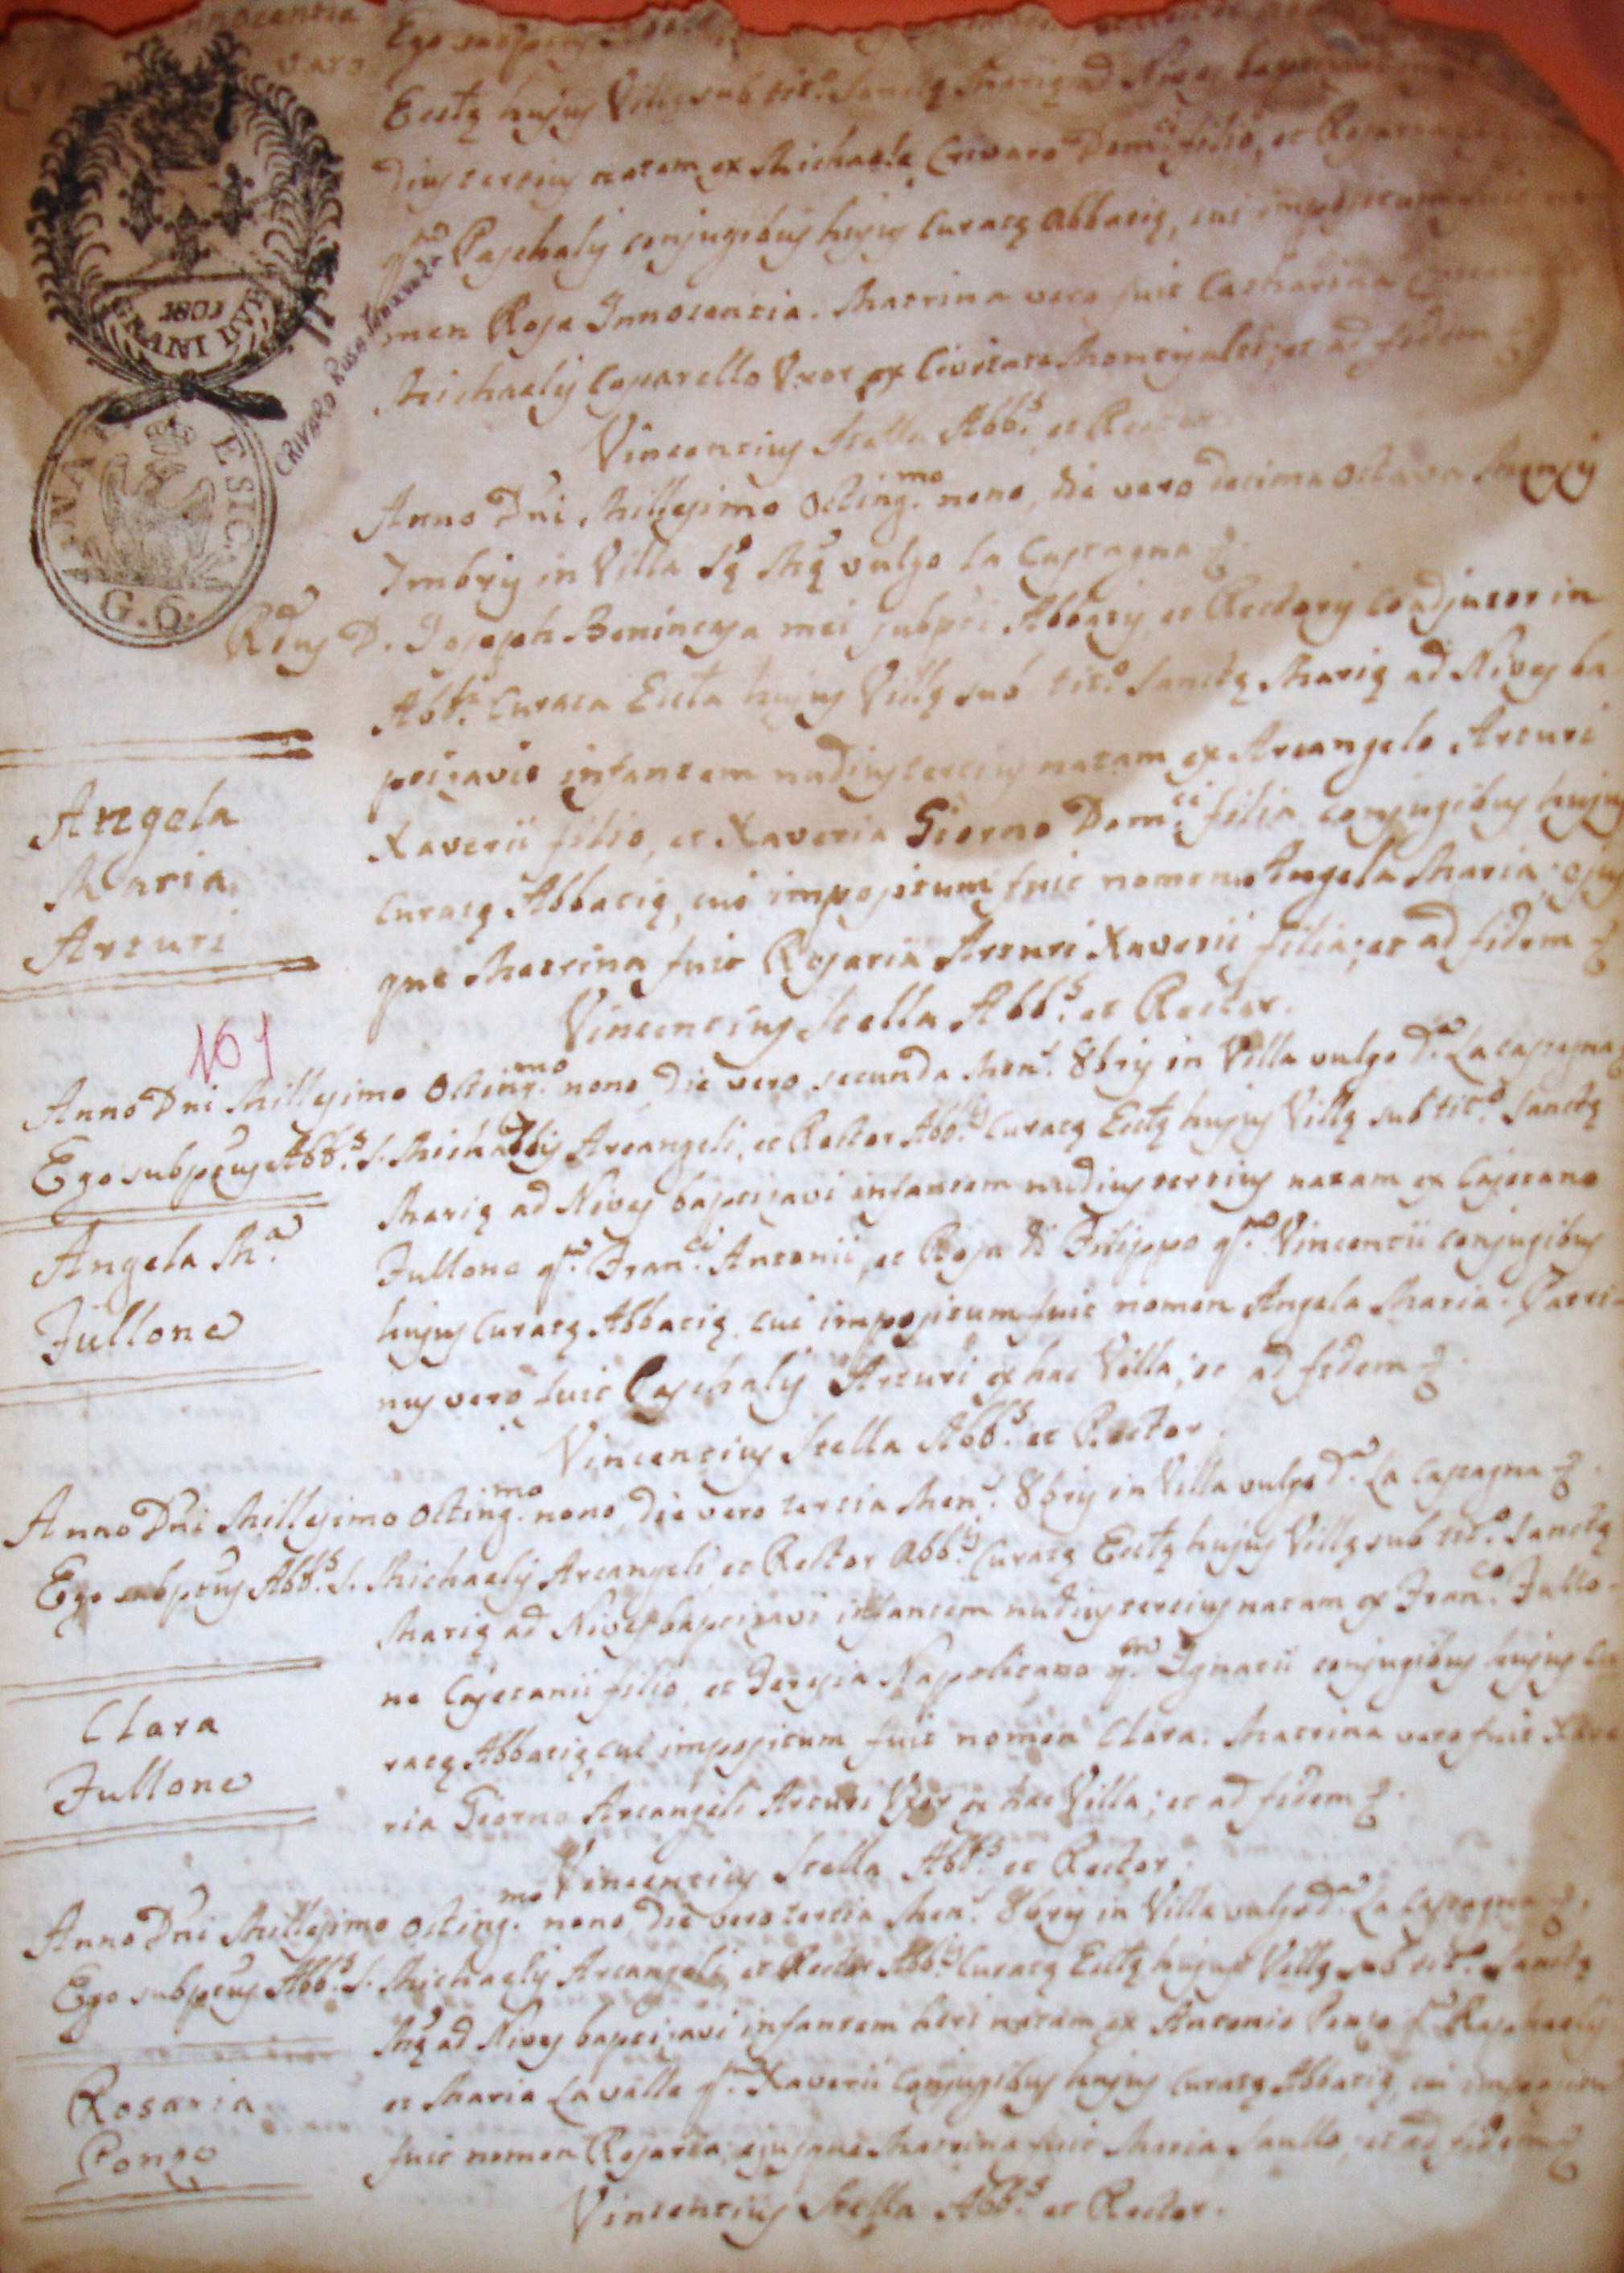 Innocentia
Ego
Eccłę hujus Villę sub tit.º Sanctę Marię ad Nives
diustertius natam ex Michaele Crivaro Dom.ci filio, et Rosaria
q.m Paschalis conjugibus hujus Curatę Abbatię, cui impositum fuit no
men Rosa Innocentia. Matrina vero fuit Catharina
Michaelis Caparello Uxor ex Civitate Montisalti; et ad fidem
Vincentius Stella Abb.s et Rector
CRIVARO ROSA INNOCENZA
G. Q.
ESIC.
Anno Dñi Millesimo Octing.mo nono, die vero decima octava Mensis
Imbris in Villa Sę Mę vulgo La Castagna
R.dus D. Joseph Benincasa mei subpti Abbatis, et Rectoris Coadjutor in
Abb.li Curata Eccła hujus Villę sub tit.º Sanctę Marię ad Nives ba
ptizavit infantem nudiustertius natam ex Arcangelo Arturi
Xaverii filio, et Xaveria Giorno Dom.ci filia conjugibus hujus
Curatę Abbatię, cui impositum fuit nomen Angela Maria; ejus
que Matrina fuit Rosaria Arturi Xaverii filia; et ad fidem
Vincentius Stella Abb.s et Rector.
Angela
Maria
Arturi
101
Anno Dñi Millesimo Octing.mo nono, die vero secunda Men.s 8bris in Villa vulgo d.a La Castagna
Ego subptus Abb.s S. Michaelis Arcangeli, et Rector Abb.lis Curatę Eccłę hujus Villę sub tit.º Sanctę
Marię ad Nives baptizavi infantem nudiustertius natam ex Cajetano
Fullone q.m Fran.ci Antonii, et Rosa di Filippo q.m Vincentii conjugibus
hujus Curatę Abbatię, cui impositum fuit nomen Angela Maria. Patri
nus vero fuit Paschalis Arturi ex hac Villa; et ad fidem
Vincentius Stella Abb.s et Rector.
Angela M.a
Fullone
Anno Dñi Millesimo Octing.mo nono, die vero tertia Men.s 8bris in Villa vulgo d.a La Castagna
Ego subptus Abb.s S. Michaelis Arcangeli et Rector Abb.lis Curatę Eccłę hujus Villę sub tit.º Sanctę
Marię ad Nives baptizavi infantem nudiustertius natam ex Fran.co Fullo
ne Cajetanii filio, et Teresia Napolitano q.m Ignatii conjugibus hujus Cu
ratę Abbatię, cui impositum fuit nomen Clara. Matrina vero fuit Xave
ria Giorno Arcangeli Arturi Uxor ex hac Villa; et ad fidem
Vincentius Stella Abb.s et Rector.
Clara
Fullone
Anno Dñi Millesimo Octing.mo nono, die vero tertia Men.s 8bris in Villa vulgo d.a La Castagna
Ego subptus Abb.s S. Michaelis Arcangeli, et Rector Abb.lis Curatę Eccłę hujus Villę sub tit.º Sanctę
Mę ad Nives baptizavi infantem heri natam ex Antonio Ponzo q.m Raphaelis
et Maria Lavalle q.m Xaverii Conjugibus hujus Curatę Abbatię, cui impositum
fuit nomen Rosaria, ejusque Matrina fuit Maria Saullo; et ad fidem
Vincentius Stella Abb.s et Rector.
Rosaria
Ponzo